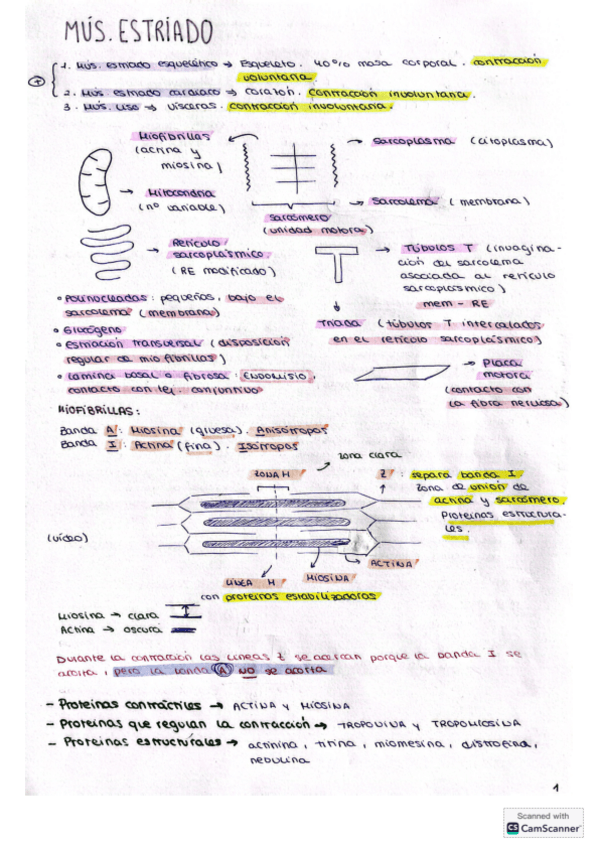 MÚS. ESTRIADO
1. Mús. estriado esquelético → Esqueleto. 40% masa corporal. contracción
voluntaria.
2. Mús. estriado cardiaco → corazón. Contracción involuntaria.
3. Mús. Liso → vísceras. contracción involuntaria.
Miofibrillas
(actina y
miosina)
→ Sarcoplasma (citoplasma)
→ Mitocondria
(nº variable)
→ Sarcolema (membrana)
sarcómero
(unidad motora)
→ Retículo
sarcoplásmico
(RE modificado)
→ Túbulos T (invagina-
ción del sarcolema
asociada al retículo
sarcoplásmico)
mem - RE
• Polinucleadas: pequeños, bajo el
sarcolema (membrana)
• Glucógeno
• Estriación transversal (disposición
regular de miofibrillas)
• Lámina basal o fibrosa: Endomisio,
contacto con tej. conjuntivo
Triada (túbulos T intercalados
en el retículo sarcoplásmico)
→ Placa
motora
(contacto con
la fibra nerviosa)
MIOFIBRILLAS:
Banda A: Miosina (gruesa). Anisótropos
Banda I: Actina (fina). Isótropos
zona clara
ZONA H
Z: separa banda I.
Zona de unión de
actina y sarcómero.
Proteínas estructura-
les.
(vídeo)
ACTINA
LÍNEA H
MIOSINA
con proteínas estabilizadoras
Miosina → clara
Actina → oscura
Durante la contracción las líneas Z se acercan porque la banda I se
acorta, pero la banda A NO se acorta
- Proteínas contráctiles → ACTINA Y MIOSINA
- Proteínas que regulan la contracción → TROPONINA Y TROPOMIOSINA
- Proteínas estructurales → actinina, titina, miomesina, distrofina,
nebulina
1
Scanned with
CS CamScanner